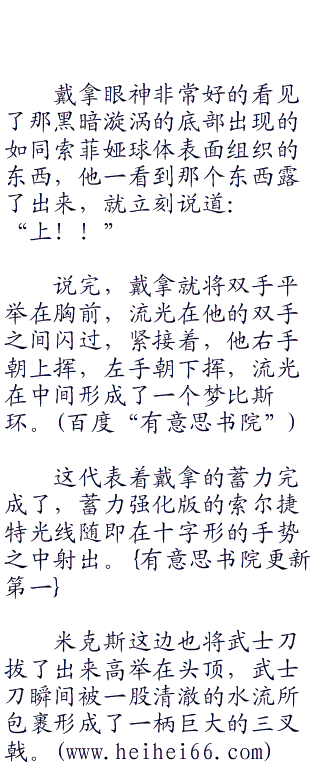 戴拿眼神非常好的看见
了那黑暗漩涡的底部出现的
如同索菲娅球体表面组织的
东西，他一看到那个东西露
了出来，就立刻说道：
“上！！”
说完，戴拿就将双手平
举在胸前，流光在他的双手
之间闪过，紧接着，他右手
朝上挥，左手朝下挥，流光
在中间形成了一个梦比斯
环。(百度“有意思书院”)
这代表着戴拿的蓄力完
成了，蓄力强化版的索尔捷
特光线随即在十字形的手势
之中射出。{有意思书院更新
第一}
米克斯这边也将武士刀
拔了出来高举在头顶，武士
刀瞬间被一股清澈的水流所
包裹形成了一柄巨大的三叉
戟。(www.heihei66.com)